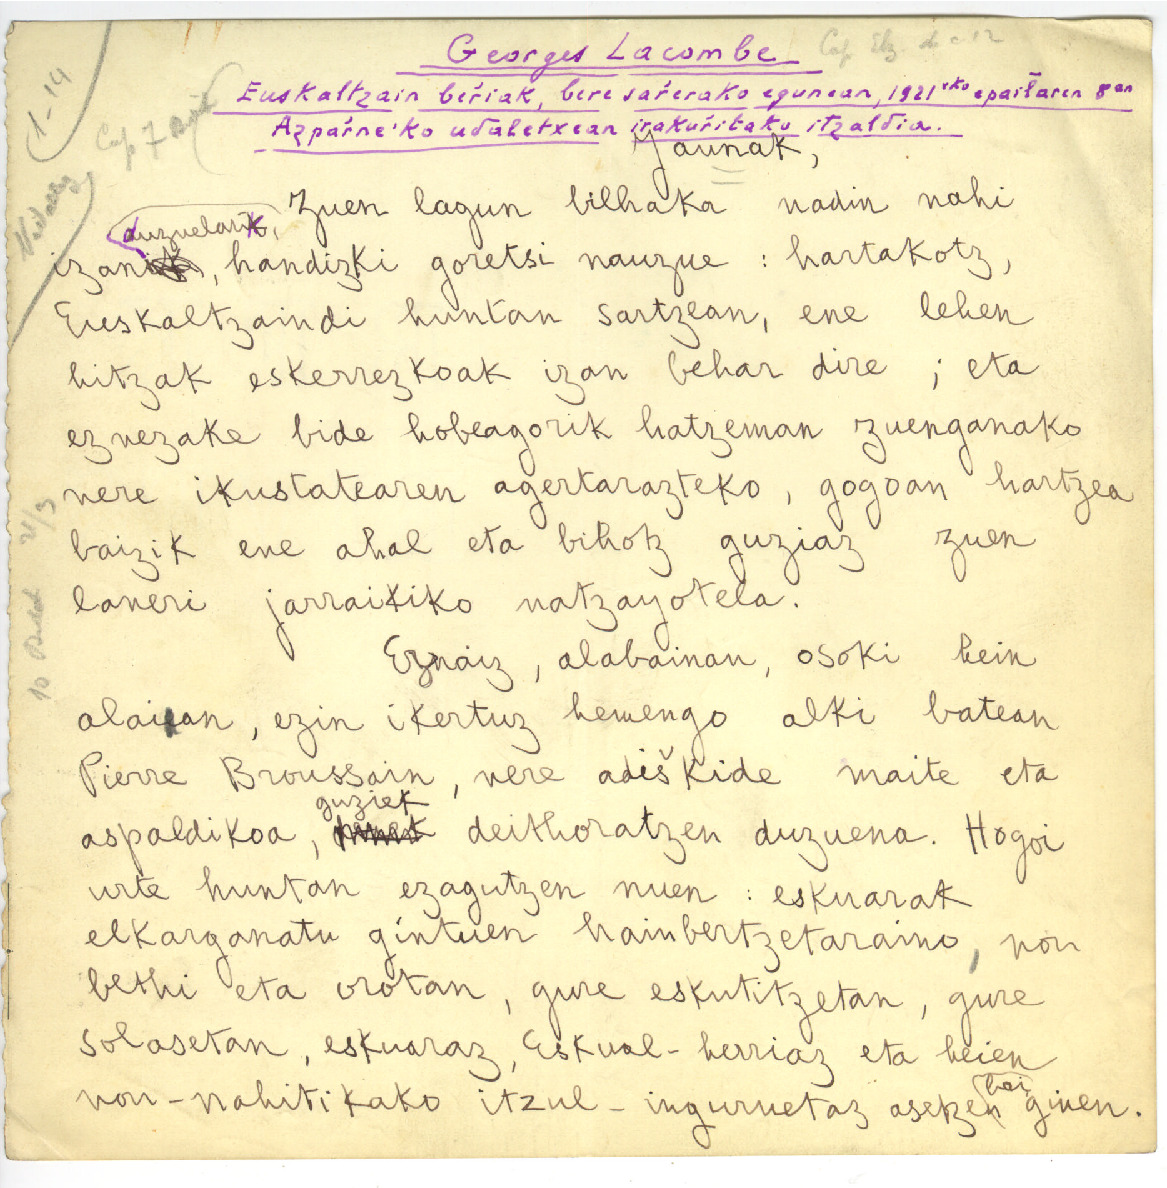 Georges Lacombe
Euskaltzain beŕiak, bere saŕerako egunean, 1921'eko epaiĺaren 8an
Azpaŕne'ko udaletxean irakuŕitako itzaldia.
Jaunak,
Zuen lagun bilhaka nadin nahi
duzuelarik,
izan, handizki goretsi nauzue : hartakotz,
Euskaltzaindi huntan sartzean, ene lehen
hitzak eskerrezkoak izan behar dire ; eta
eznezake bide hobeagorik hatzeman zuenganako
nere ikustatearen agertarazteko, gogoan hartzea
baizik ene ahal eta bihotz guziaz zuen
laneri jarraikiko natzayotela.
Eznaiz, alabainan, osoki hein
alaiean, ezin ikertuz hemengo alki batean
Pierre Broussain, nere adiškide maite eta
guziek
aspaldikoa, deithoratzen duzuena. Hogoi
urte huntan ezagutzen nuen : eskuarak
elkarganatu gintuen hainbertzetaraino, non
bethi eta orotan, gure eskutitzetan, gure
solasetan, eskuaraz, Eskual-herriaz eta heien
non-nahitikako itzul-inguruetaz asetzen bai ginen.
1-14
10